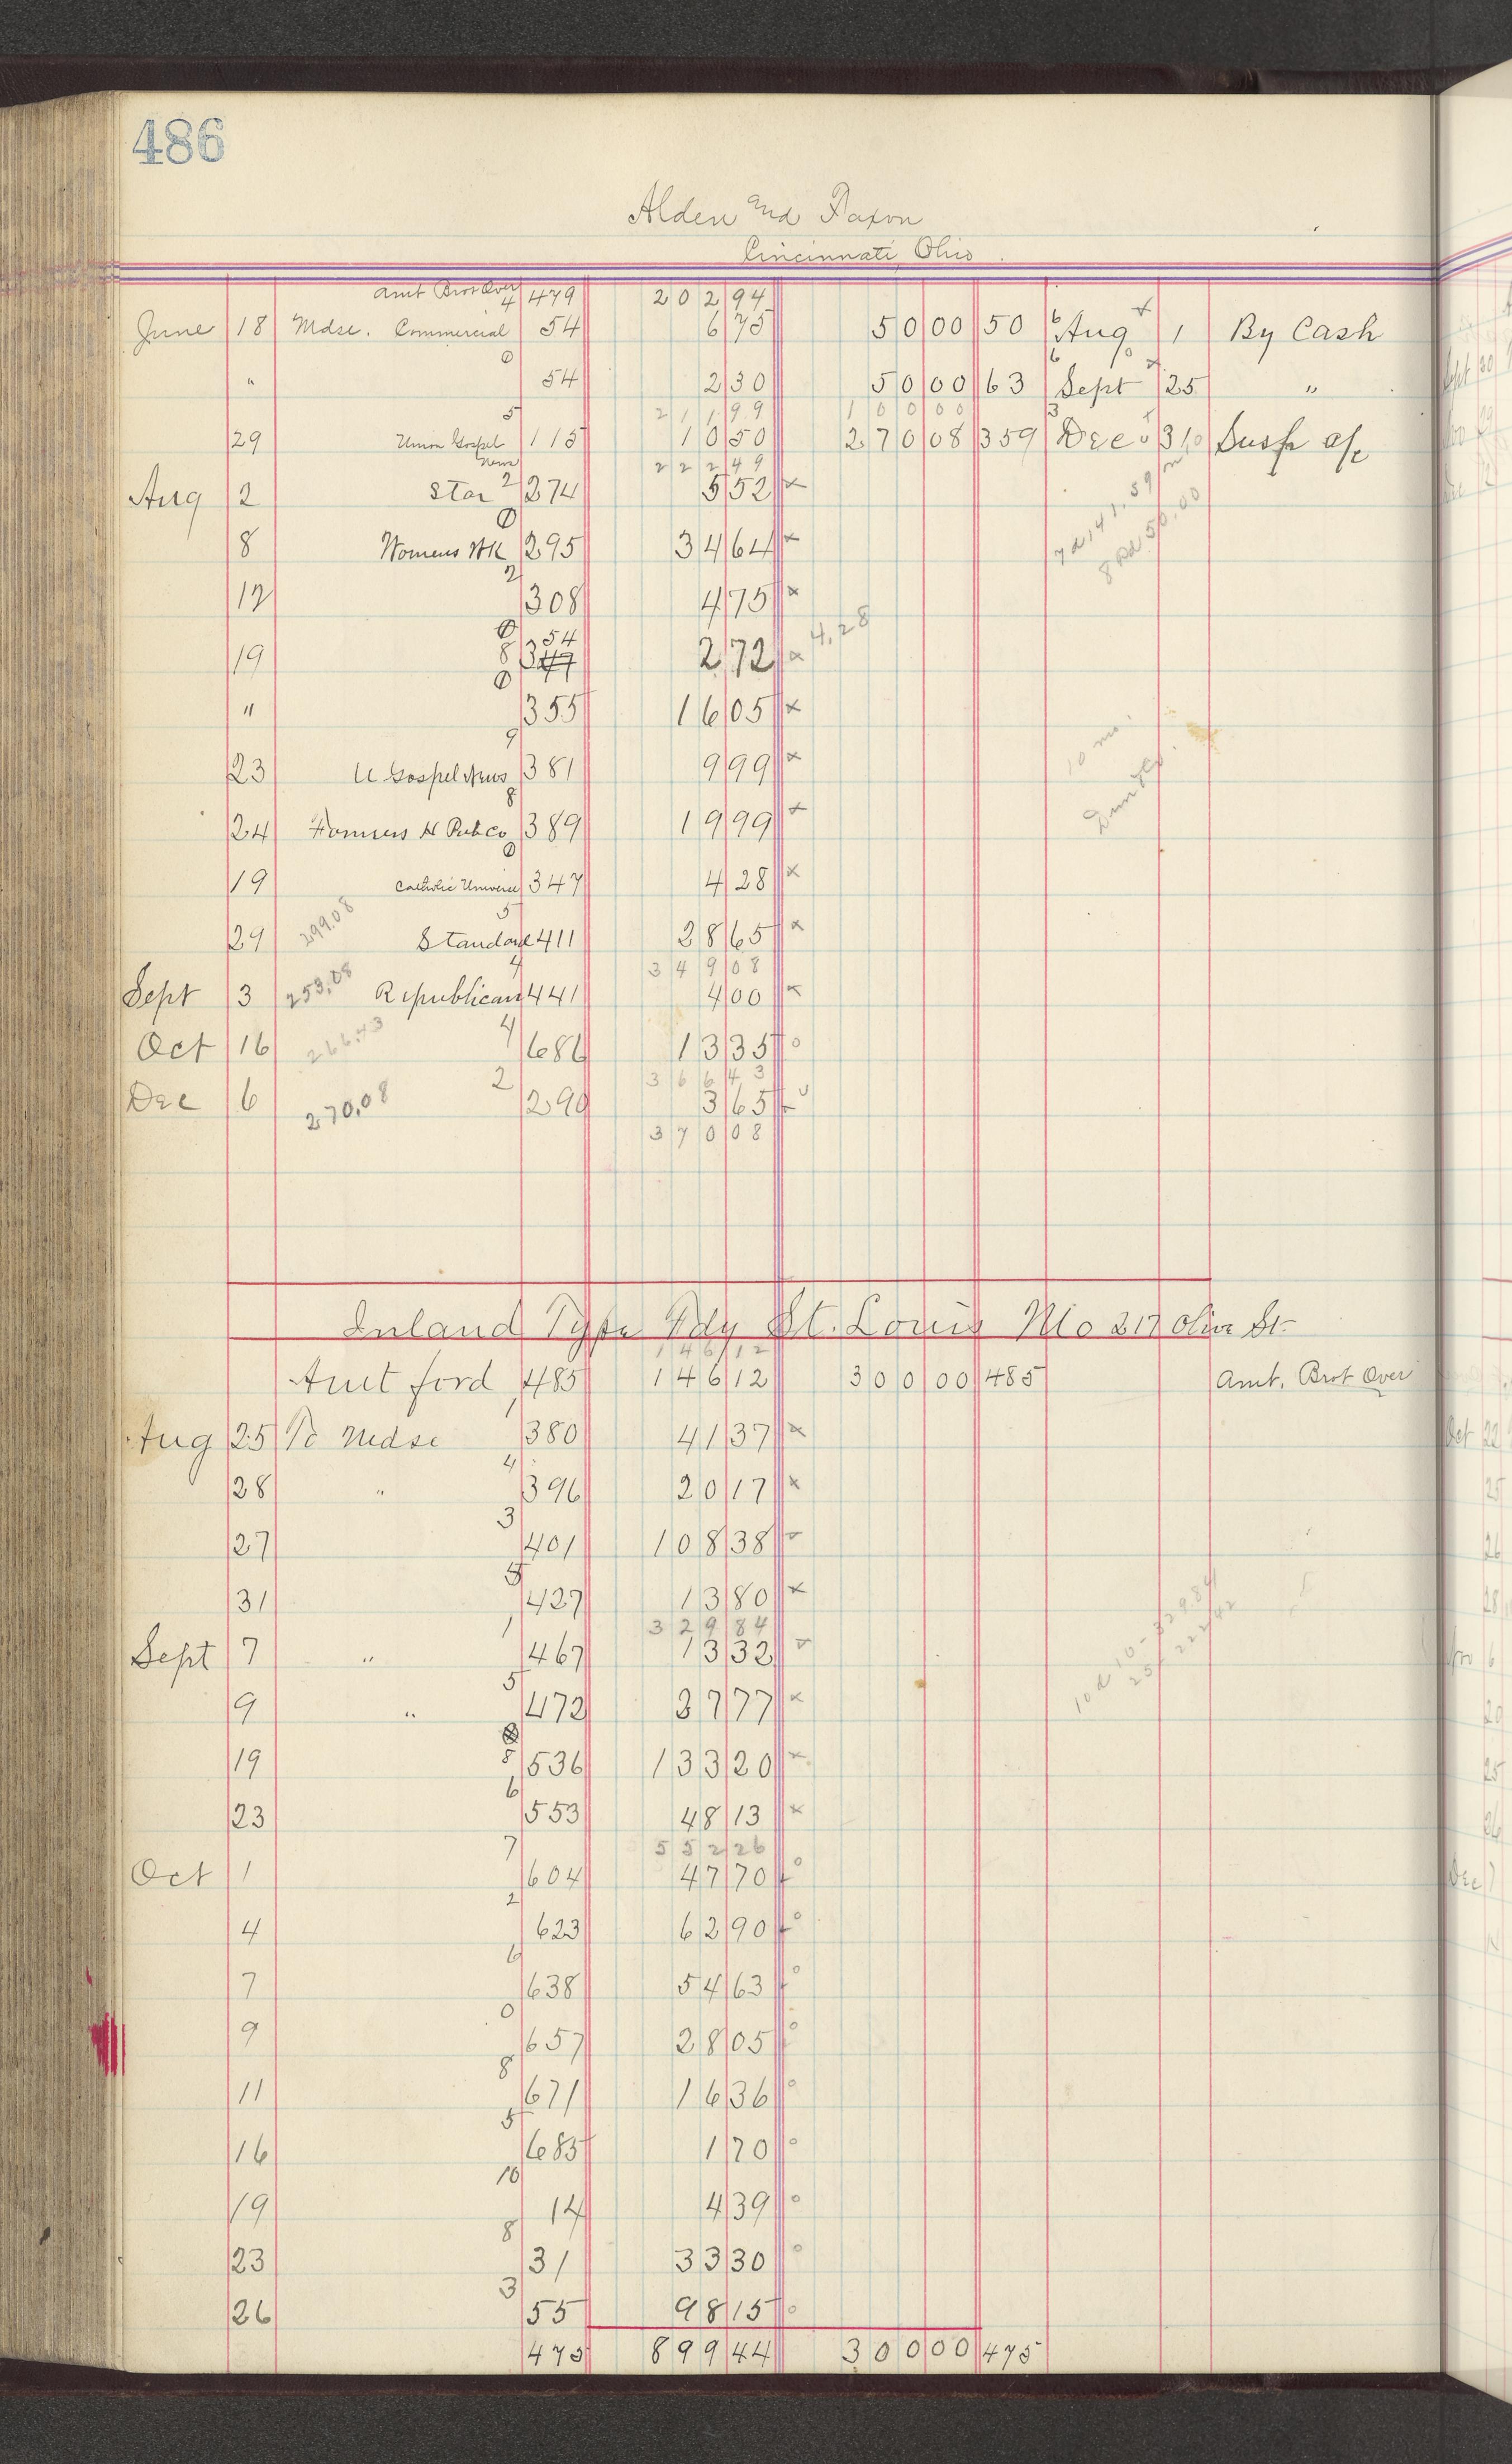 486
Alden and Faxon
Cincinnati, Ohio
Amt Brot Over 4 479 202 94
June 18 Mdse. Commercial 54 6 75 50 00 50 6 Aug 1 By Cash
" 0 54 2 30 50 00 63 6 Sept 25 "
211 99 100 00
29 Union Gospel News 5 115 10 50 270 08 359 3 Dec 31 Susp a/c
222 49
Aug 2 Star 2 274 5 52 x
8 Womens Wk 0 295 34 64 x
12 2 308 4 75 x
19 0 8 54 347 2 72 x 4,28
" 0 355 16 05 x
23 U Gospel News 9 381 9 99 x
24 Farmers H Pub Co 8 389 19 99 x
19 Catholic Universe 0 347 4 28 x
29 299.08 Standard 5 411 28 65 x
349 08
Sept 3 253,08 Republican 4 441 4 00 x
Oct 16 266.43 4 686 13 35 o
366 43
Dec 6 270,08 2 290 3 65
370 08
Inland Type Fdy St. Louis Mo 217 Olive St-
146 12
Amt ford 485 146 12 300 00 485 Amt. Brot Over
Aug 25 To Mdse 1 380 41 37 x
28 " 4 396 20 17 x
27 3 401 108 38
31 5 427 13 80 x
329 84
Sept 7 " 1 467 13 32
9 " 5 472 27 77 x
19 8 536 133 20 x
23 6 553 48 13 x
552 26
Oct 1 7 604 47 70 o
4 2 623 62 90 o
7 6 638 54 63 o
9 0 657 28 05 o
11 8 671 16 36 o
16 5 685 1 70 o
19 10 14 4 39 o
23 8 31 33 30 o
26 3 55 98 15 o
475 899 44 300 00 475